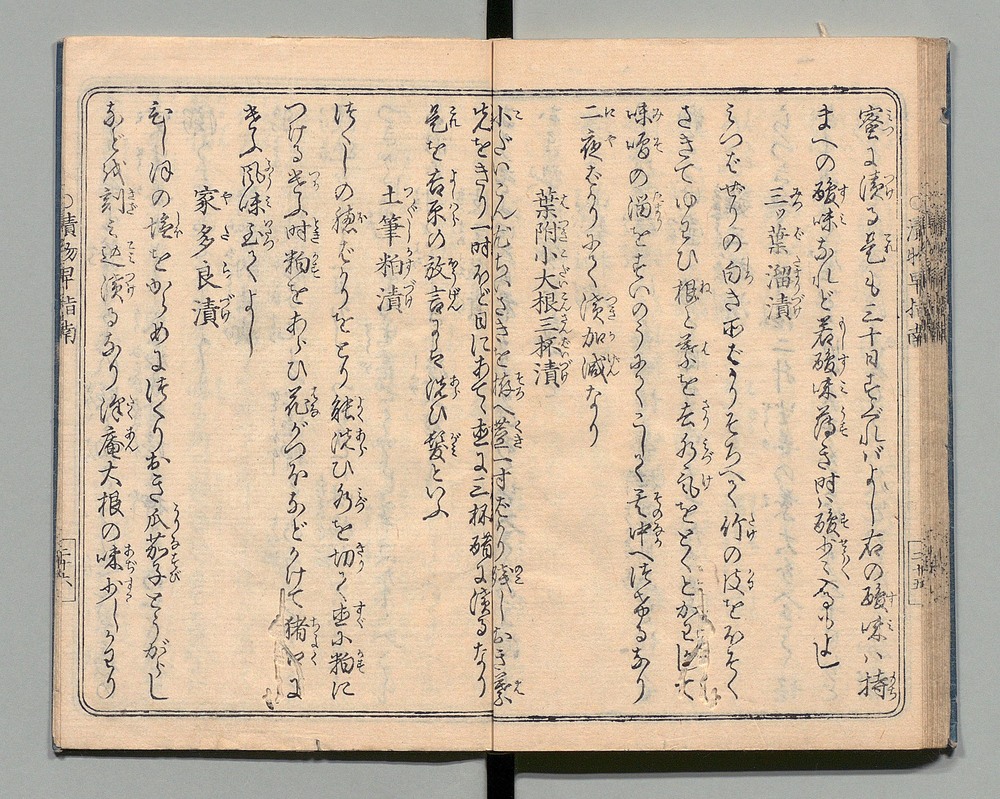 蜜に漬る是も三十日すぐればよし右の酸味ハ持
まへの酸味なれど若酸味薄き時ハ酸少々入るもよし
三ッ葉溜漬
みつばぜりの白き所ばかりそろへて竹の皮をほそく
さきてゆわひ根と葉を去水気をとくと
味噌の溜を 其中へつけるなり
二夜ばかりにて漬加減なり
葉附小大根三杯漬
小だいこん ちいさきを 茎一寸ばかり残しおき葉
先をきり一時ほど日にあて直に三杯醋に漬るなり
是を吉原の放言にてハ洗ひ髪といふ
土筆粕漬
つくしの穂ばかりをとり能洗ひ水を切て直に粕に
つける 時粕をあらひ花がつほなどかけて猪口に
風味至てよし
家多良漬
ひしほの塩をからめにつくりおき瓜茄子とうがらし
など
刻ミ込漬るなり沢庵大根の味少しかわり
漬物早指南
廿五
漬物早指南
廿六